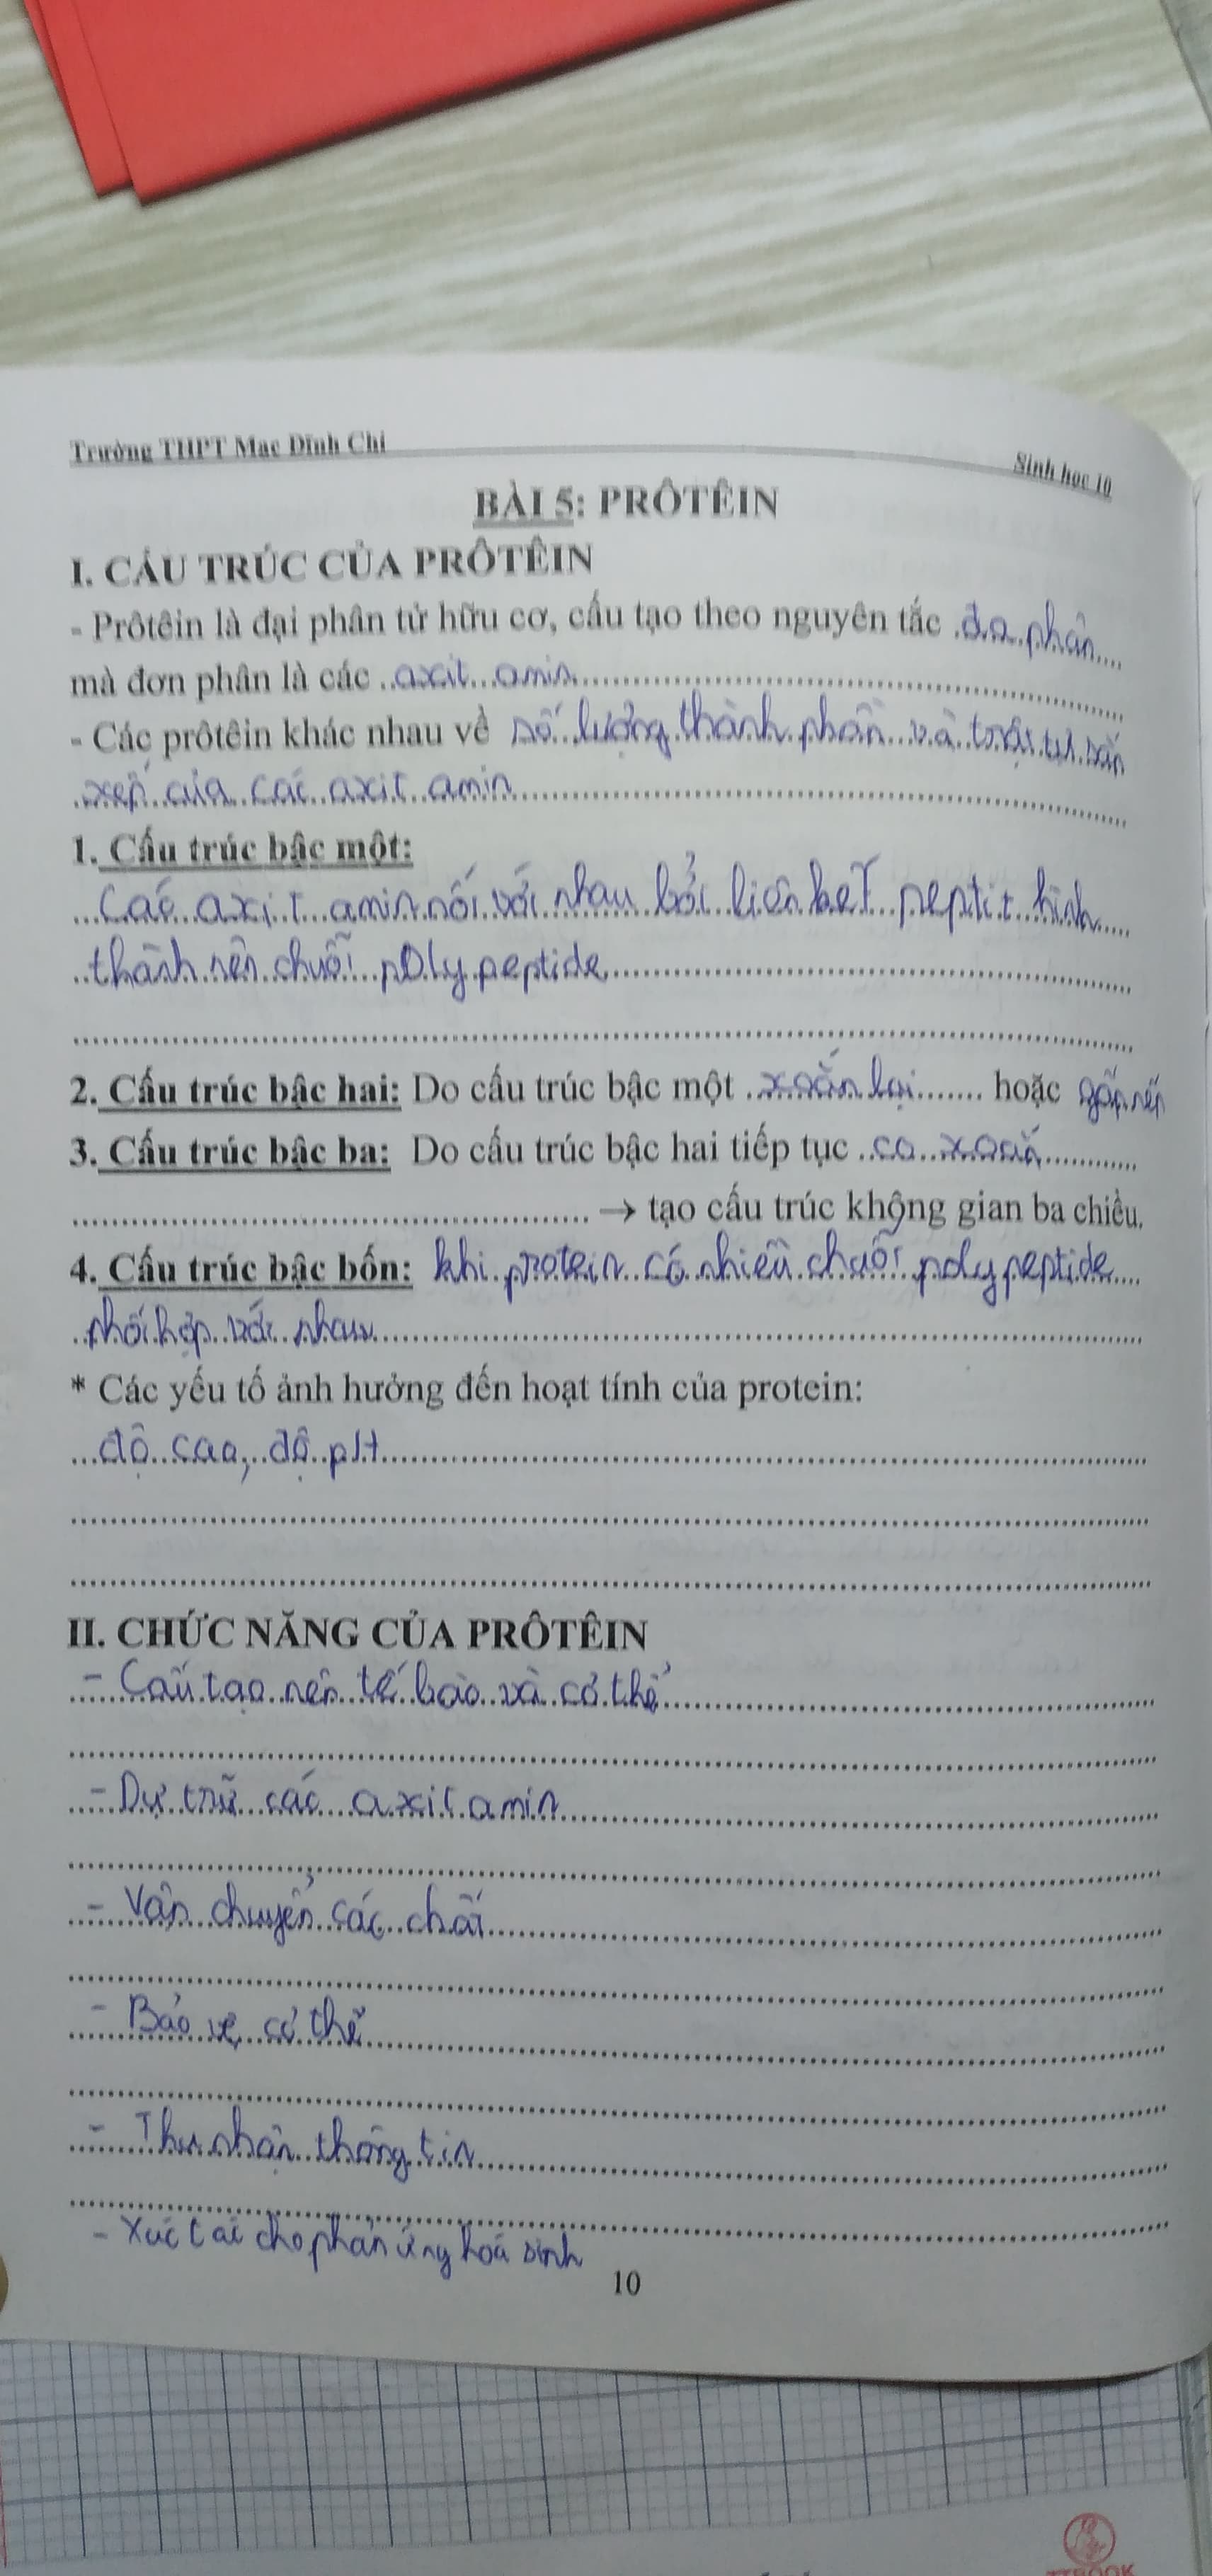 Trường THPT Mạc Đĩnh Chi
Sinh học 10
BÀI 5: PRÔTÊIN
I. CẤU TRÚC CỦA PRÔTÊIN
- Prôtêin là đại phân tử hữu cơ, cấu tạo theo nguyên tắc đa phân
mà đơn phân là các axit amin
- Các prôtêin khác nhau về số lượng thành phần và trật tự sắp
xếp của các axit amin
1. Cấu trúc bậc một:
Các axit amin nối với nhau bởi liên kết peptit hình
thành nên chuỗi polypeptide
2. Cấu trúc bậc hai: Do cấu trúc bậc một xoắn lại hoặc gấp nếp
3. Cấu trúc bậc ba: Do cấu trúc bậc hai tiếp tục co xoắn
→ tạo cấu trúc không gian ba chiều.
4. Cấu trúc bậc bốn: khi protein có nhiều chuỗi polypeptide
phối hợp với nhau
* Các yếu tố ảnh hưởng đến hoạt tính của protein:
độ cao, độ pH
II. CHỨC NĂNG CỦA PRÔTÊIN
- Cấu tạo nên tế bào và cơ thể
- Dự trữ các axit amin
- Vận chuyển các chất
- Bảo vệ cơ thể
- Thu nhận thông tin
- Xúc tác cho phản ứng hoá sinh
10
TTBOOK